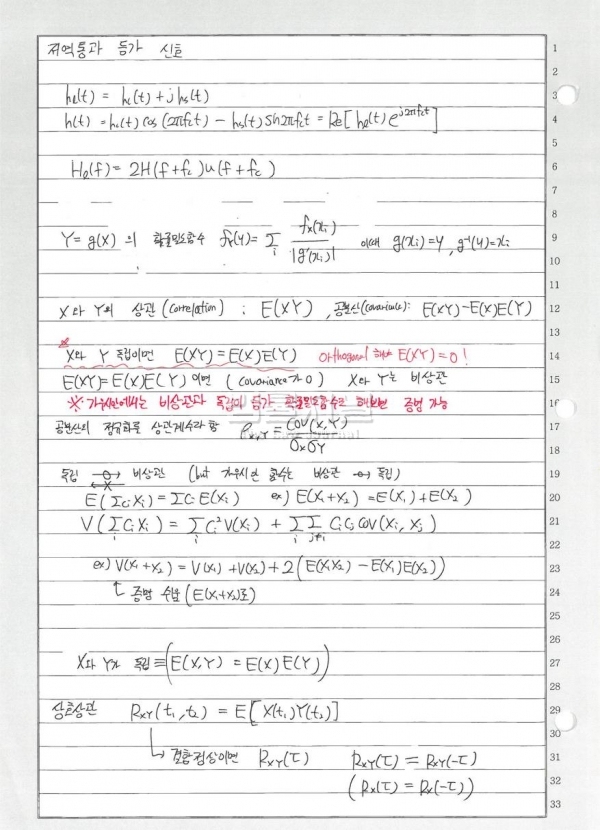 저역통과 등가 신호
hl(t) = hc(t) + jhs(t)
h(t) = hc(t) cos (2πfct) - hs(t) sin2πfct = Re[ hl(t) e^{j2πfct} ]
Hl(f) = 2H(f+fc)u(f+fc)
Y = g(X) 의 확률밀도함수 fY(y) = Σi fx(xi) / |g'(xi)| 이때 g(xi)=y, g⁻¹(y)=xi
X와 Y의 상관 (correlation) : E(XY), 공분산(covariance): E(XY)-E(X)E(Y)
※ X와 Y 독립이면 E(XY) = E(X)E(Y) Orthogonal 하면 E(XY)=0!
E(XY)=E(X)E(Y) 이면 (covariance가 0) X와 Y는 비상관
※ 가우시안에서는 비상관과 독립이 등가 확률밀도함수로 해보면 증명 가능
공분산의 정규화를 상관계수라 함 ρX,Y = COV(X,Y) / σXσY
독립 → 비상관 (but 가우시안 함수는 비상관 ↔ 독립)
← X
E(ΣCiXi) = ΣCi E(Xi) ex) E(X1+X2) = E(X1) + E(X2)
V(ΣCiXi) = Σi Ci² V(Xi) + Σi Σj≠i CiCj COV(Xi, Xj)
ex) V(X1+X2) = V(X1) + V(X2) + 2(E(X1X2) - E(X1)E(X2))
증명 쉬움 (E(X1+X2)로)
X와 Y가 독립 ≡ (E(X,Y) = E(X)E(Y))
상호상관 RXY(t1,t2) = E[X(t1)Y(t2)]
↳ 결합정상이면 RXY(τ) RXY(τ) = RXY(-τ)
(RX(τ) = RX(-τ))
1
2
3
4
5
6
7
8
9
10
11
12
13
14
15
16
17
18
19
20
21
22
23
24
25
26
27
28
29
30
31
32
33